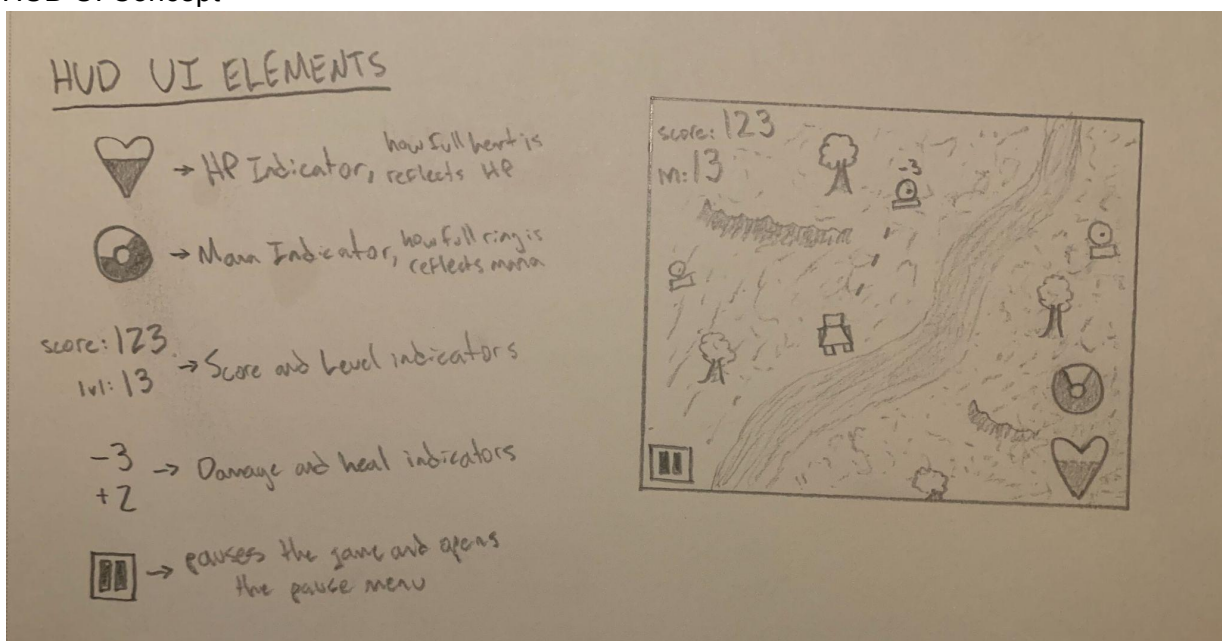 HUD UI Concept
HUD UI ELEMENTS
→ HP Indicator, how full heart is
reflects HP
→ Mana Indicator, how full ring is
reflects mana
score: 123
lvl: 13
→ Score and Level indicators
-3
+2
→ Damage and heal indicators
→ pauses the game and opens
the pause menu
score: 123
m: 13
-3